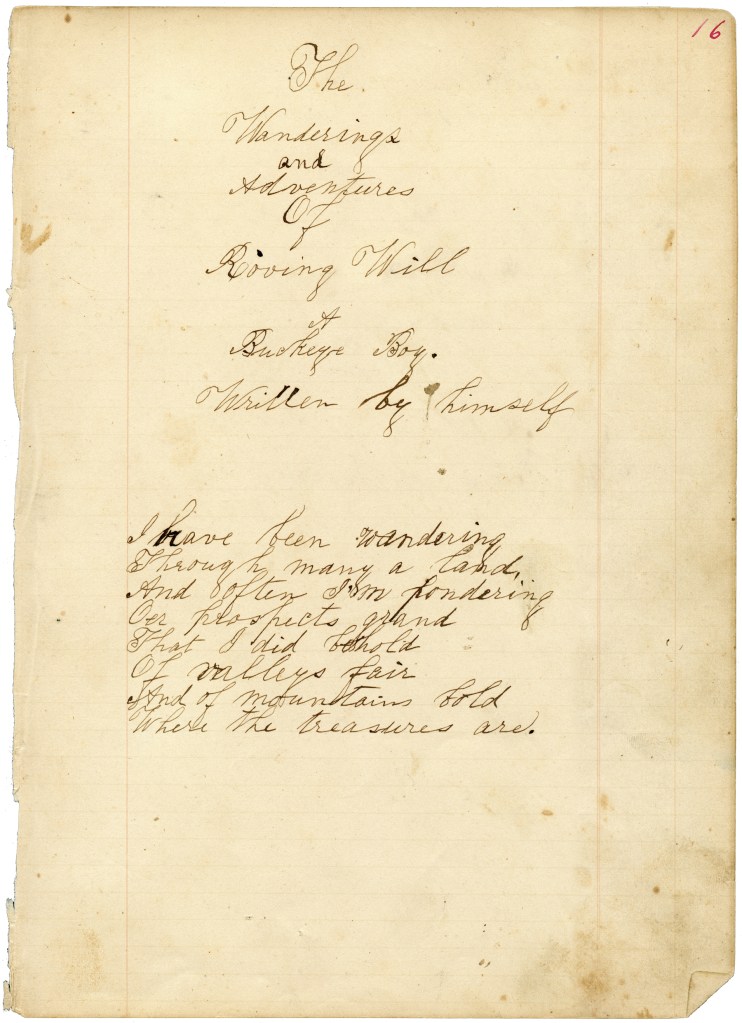 16
The
Wanderings
and
Adventures
Of
Roving Will
A
Buckeye Boy.
Written by himself
I have been wandering
Through many a land,
And often I'm pondering
Oer prospects grand
That I did behold
Of valleys fair
And of mountains bold
Where the treasures are.